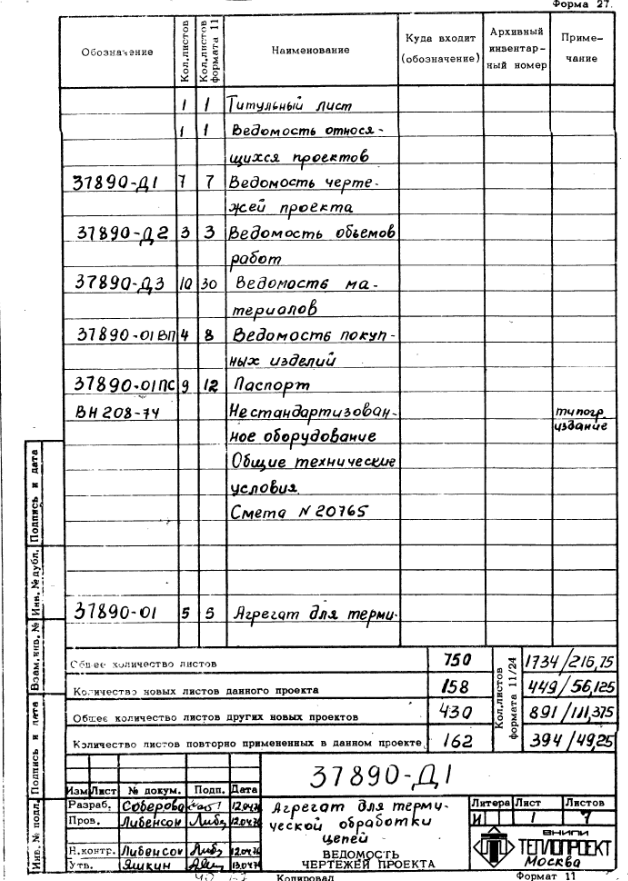 Форма 27.
Обозначение Кол.листов Кол.листов формата 11 Наименование Куда входит (обозначение) Архивный инвентарный номер Примечание
1 1 Титульный лист
1 1 Ведомость относя-
щихся проектов
37890-Д1 7 7 Ведомость черте-
жей проекта
37890-Д2 3 3 Ведомость объемов
работ
37890-Д3 10 30 Ведомость ма-
териалов
37890-01ВП 4 8 Ведомость покуп-
ных изделий
37890-01ПС 9 12 Паспорт
ВН 208-74 Нестандартизован- типогр.
ное оборудование издание
Общие технические
условия
Смета N 20765
37890-01 5 5 Агрегат для терми-
Общее количество листов 750 Кол.листов формата 11/24 1734/216,75
Количество новых листов данного проекта 158 449/56,125
Общее количество листов других новых проектов 430 891/111,375
Количество листов повторно примененных в данном проекте 162 394/49,25
Подпись и дата
Инв. № дубл.
Взам. инв. №
Подпись и дата
Инв. № подл.
37890-Д1
Изм Лист № докум. Подп. Дата
Разраб. Соберова
Пров. Либенсон
Н.контр. Либенсон
Утв. Яшкин
Агрегат для терми-
ческой обработки
цепей
ВЕДОМОСТЬ
ЧЕРТЕЖЕЙ ПРОЕКТА
Литера Лист Листов
И 1 7
ВНИПИ
ТЕПЛОПРОЕКТ
Москва
Копировал Формат 11